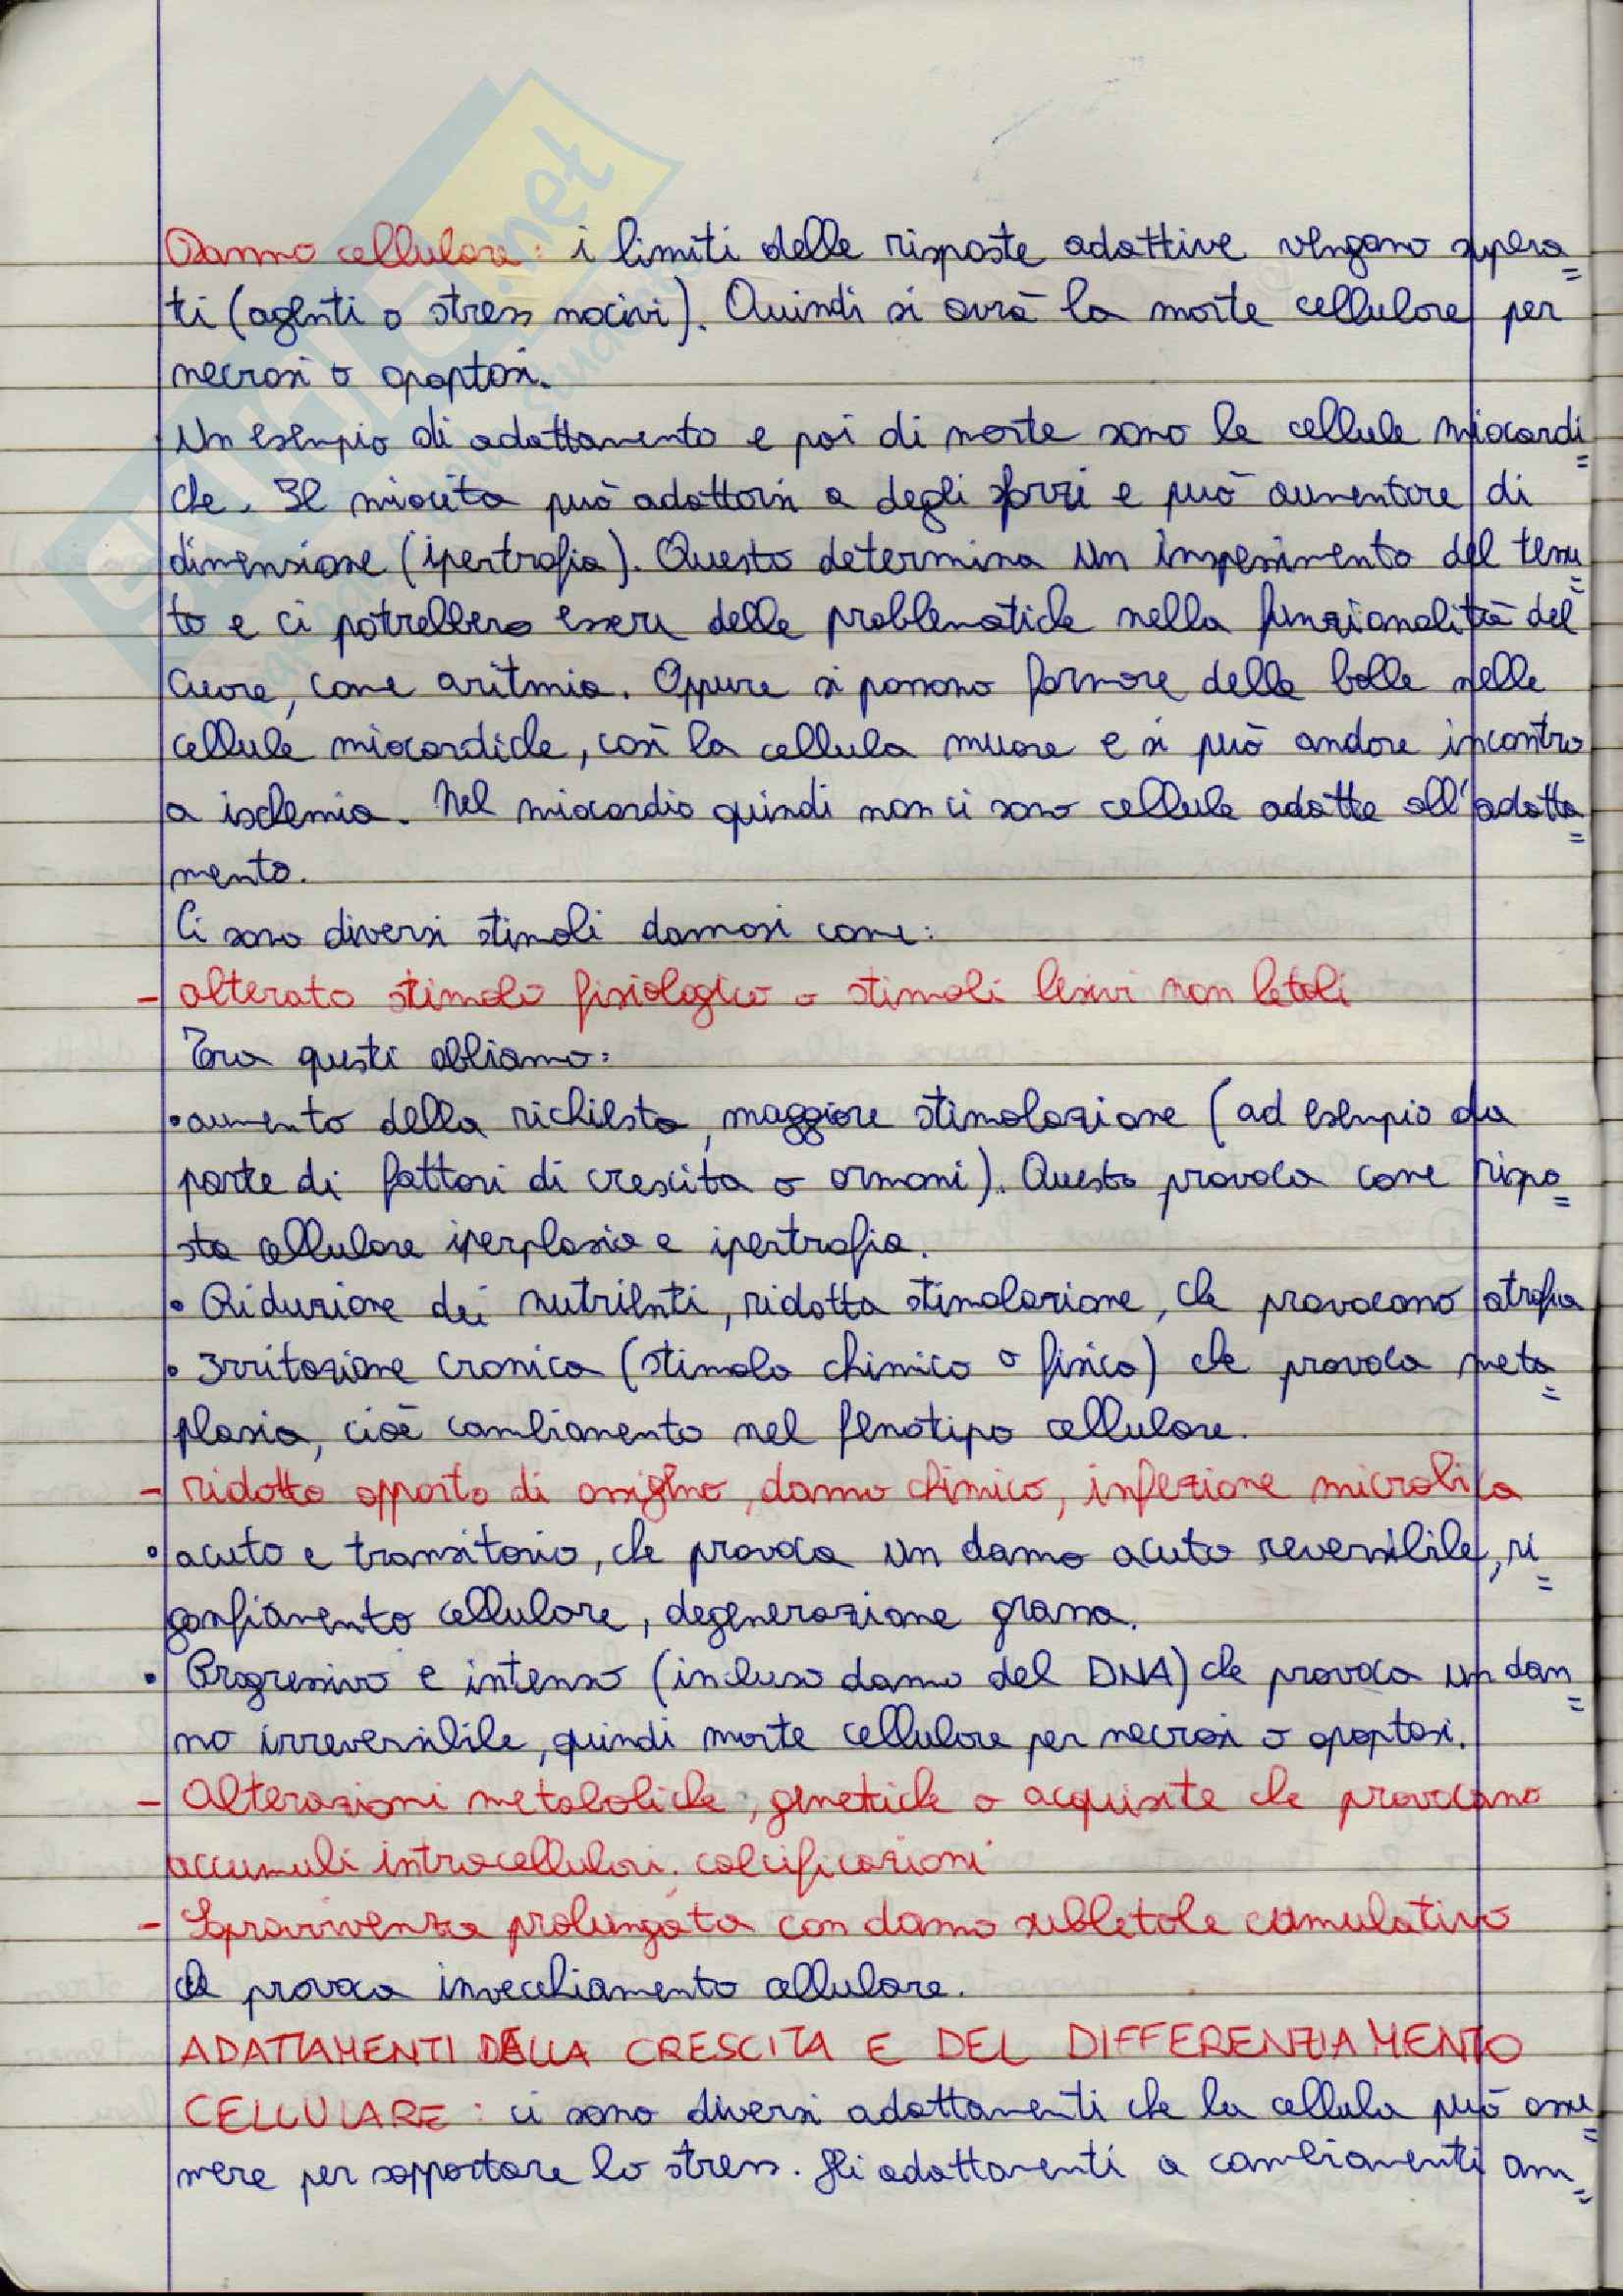 Danno cellulare: i limiti delle risposte adattive vengono supera=
ti (agenti o stress nocivi). Quindi si avrà la morte cellulare per
necrosi o apoptosi.
Un esempio di adattamento e poi di morte sono le cellule miocardi=
che. Il miocita può adattarsi a degli sforzi e può aumentare di
dimensione (ipertrofia). Questo determina un inspessimento del tessu=
to e ci potrebbero essere delle problematiche nella funzionalità del
cuore, come aritmia. Oppure si possono formare delle bolle nelle
cellule miocardiche, così la cellula muore e si può andare incontro
a ischemia. Nel miocardio quindi non ci sono cellule adatte all'adatta=
mento.
Ci sono diversi stimoli dannosi come:
- alterato stimolo fisiologico o stimoli lesivi non letali
Tra questi abbiamo:
• aumento della richiesta, maggiore stimolazione (ad esempio da
parte di fattori di crescita o ormoni). Questo provoca come rispo=
sta cellulare iperplasia e ipertrofia.
• Riduzione dei nutrienti, ridotta stimolazione, che provocano atrofia
• Irritazione cronica (stimolo chimico o fisico) che provoca meta=
plasia, cioè cambiamento nel fenotipo cellulare.
- ridotto apporto di ossigeno, danno chimico, infezione microbica
• acuto e transitorio, che provoca un danno acuto reversibile, ri=
gonfiamento cellulare, degenerazione grassa.
• Progressivo e intenso (incluso danno del DNA) che provoca un dan=
no irreversibile, quindi morte cellulare per necrosi o apoptosi.
- Alterazioni metaboliche, genetiche o acquisite che provocano
accumuli intracellulari, calcificazioni
- Sopravvivenza prolungata con danno subletale cumulativo
che provoca invecchiamento cellulare.
ADATTAMENTI DELLA CRESCITA E DEL DIFFERENZIAMENTO
CELLULARE: ci sono diversi adattamenti che la cellula può assu=
mere per sopportare lo stress. Gli adattamenti a cambiamenti am=